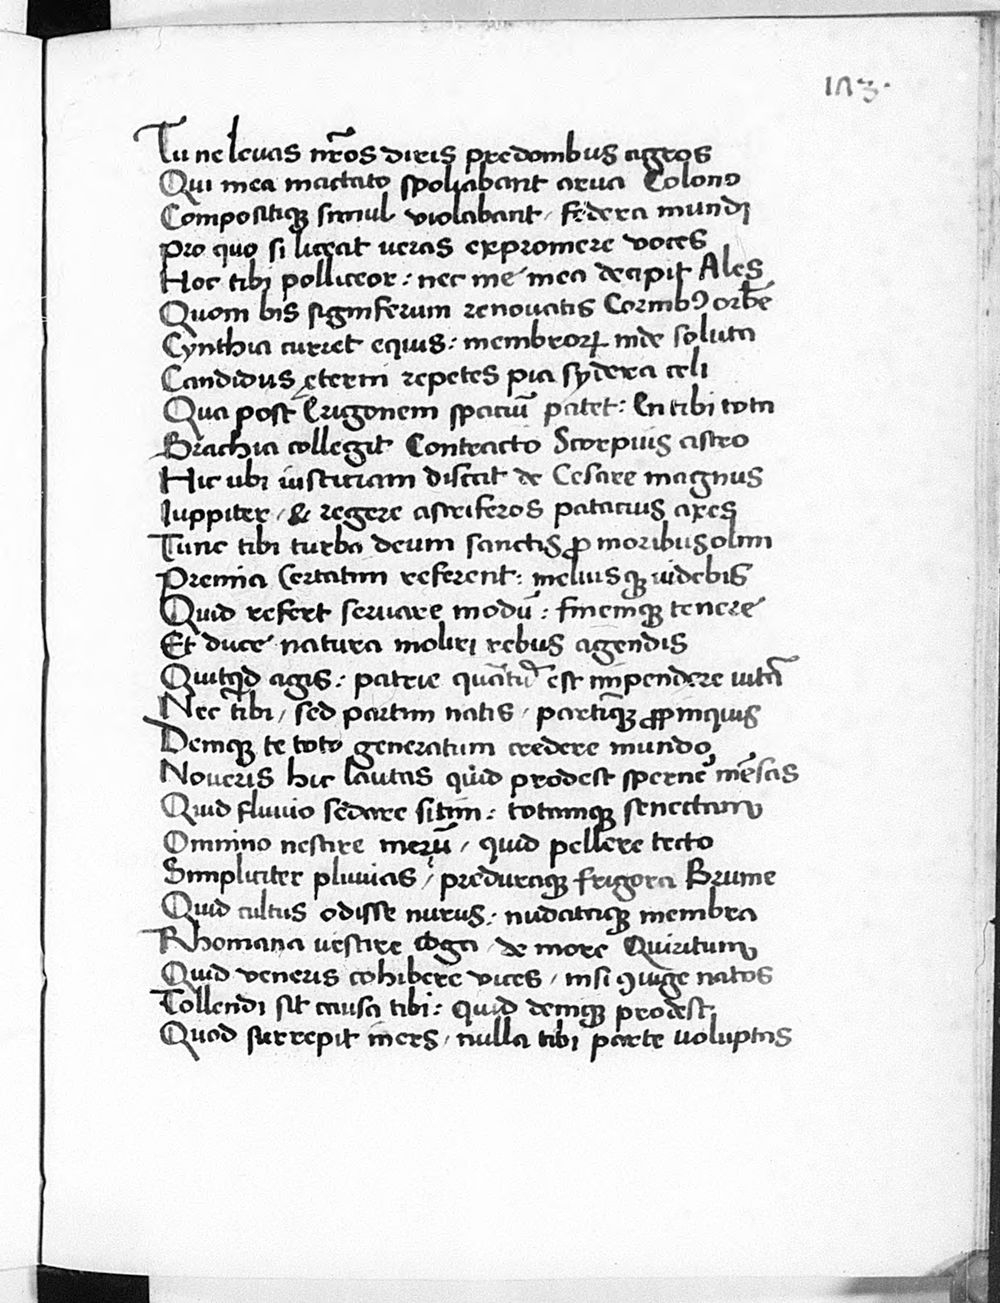 193.
Tu ne levas nr̃os diris predonibus agros
Qui mea mactato spoliabant arua Colono
Compositiqꝫ simul violabant / federa mundi
Pro quo si liceat ueras expromere voces
Hoc tibi polliceor : nec me mea decipit Ales
Quom bis signiferum renouatis Cornibꝰ orbẽ
Cynthia curret equis : membrorꝝ inde soluta
Candidus ęterni repetes pia sydera celi
Qua post Erigonem spaciũ patet : En tibi tota
Brachia collegit Contracto Scorpius astro
Hic ubi iusticiam discat de Cesare magnus
Iuppiter / & regere astriferos pataciis axes
Tunc tibi turba deum sanctis ꝓ moribus olim
Premia Certatim referent : meliusqꝫ uidebis
Quid refert seruare modũ : finemqꝫ tenere
Et duce natura moliri rebus agendis
Quitqd agis : patrie quãtũ est impendere uitã
Nec tibi / sed partim natis / partĩqꝫ ꝓpinquis
Deniqꝫ te toto generatum credere mundo
Noueris hic lautas quid prodest spernẽ mẽsas
Quid fluuio sedare sitim : totamqꝫ senectam
Omnino nescire merũ / quid pellere tecto
Simpliciter pluuias / preduraqꝫ frigora Brume
Quid cultus odisse nurus : nudataqꝫ membra
Rhomana uestire toga de more Quiritum
Quid veneris cohibere vices / nisi ꝯiuge natos
Tollendi sit causa tibi : quid deniqꝫ prodest
Quod surrepit iners / nulla tibi parte uoluptas